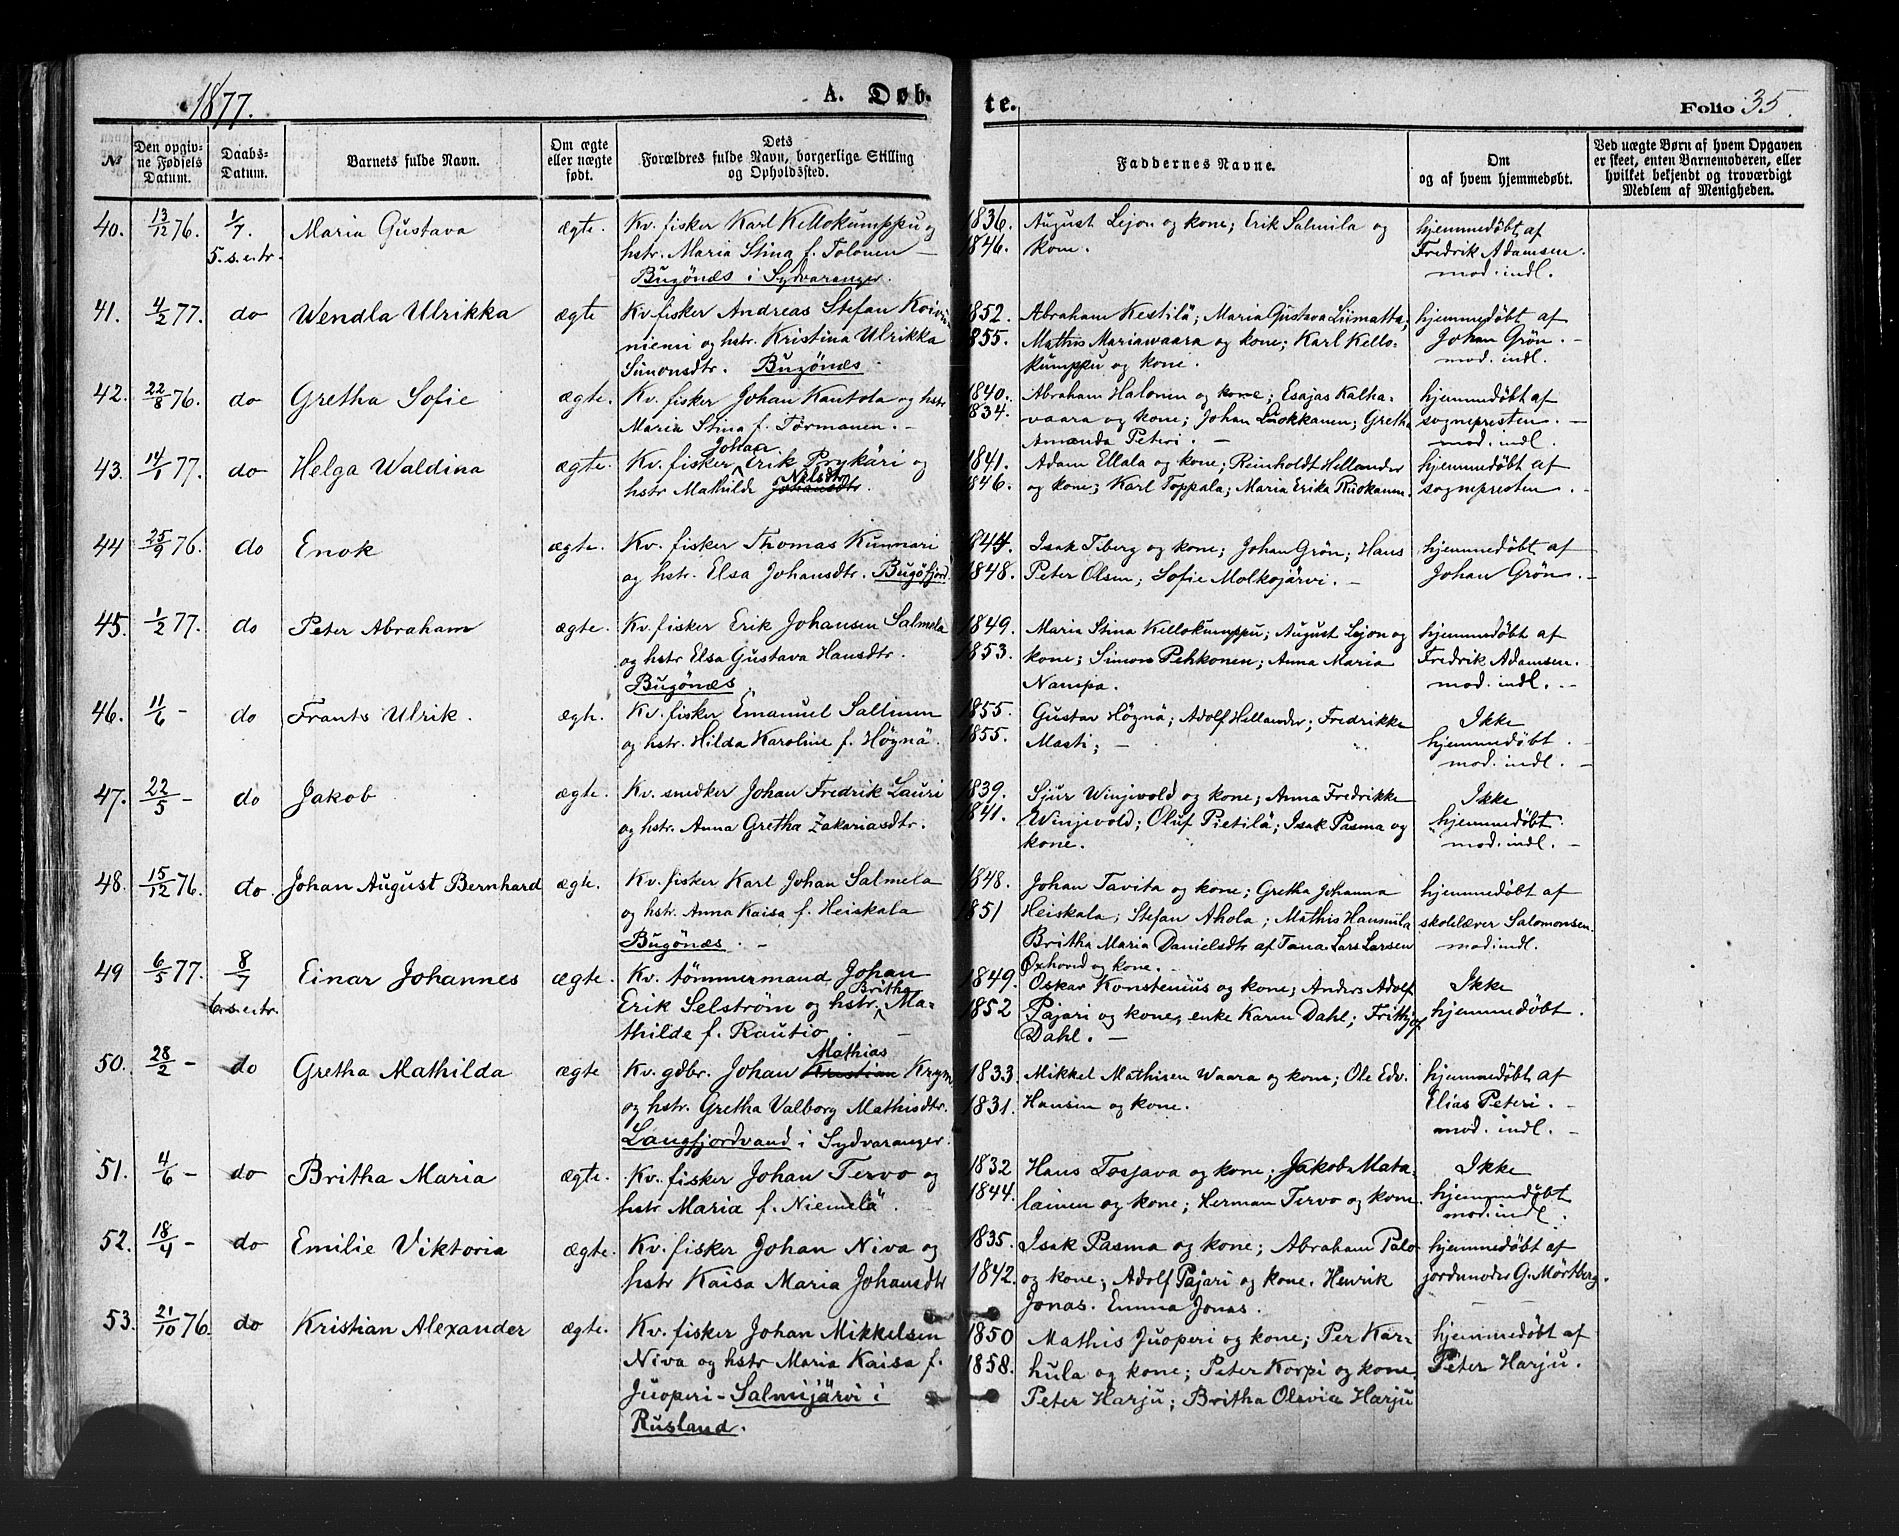 1877.
A. Døb-
te.
Folio 35.
№
Den opgiv-
ne Fødsels
Datum.
Daabs-
Datum.
Barnets fulde Navn.
Om ægte
eller uægte
født.
Dets
Forældres fulde Navn, borgerlige Stilling
og Opholdssted.
Faddernes Navne.
Om
og af hvem hjemmedøbt.
Ved uægte Børn af hvem Opgaven
er skeet, enten Barnemoderen, eller
hvilket bekjendt og troværdigt
Medlem af Menigheden.
40. 13/12 76. 1/7. Maria Gustava ægte. Kv. fisker Karl Kellokumppu og 1836. August Lejon og kone; Erik Salmila og hjemmedøbt af
5. s. e. tr. hstr. Maria Stina f. Tolonen — 1846. kone. Fredrik Adamsen.
Bugönæs i Sydvaranger. mod. indl.
41. 4/2 77. do Wendla Ulrikka ægte Kv. fisker Andreas Stefan Koivu- 1852. Abraham Kestilä; Maria Gustava Liimatta; hjemmedøbt af
niemi og hstr. Kristina Ulrikka 1855. Mathis Mariawaara og kone; Karl Kello- Johan Grön. -
Simonsdtr. Bugönæs. kumppu og kone. mod. indl.
42. 22/8 76. do Gretha Sofie ægte. Kv. fisker Johan Kantola og hstr 1840. Abraham Halonen og kone; Esajas Kalha- hjemmedøbt af
Maria Stina f. Törmänen. - 1834. vaara og kone; Johan Luokkanen; Gretha sognepresten. -
Amanda Petteri. - mod. indl.
43. 14/1 77. do Helga Waldina ægte. Kv. fisker Johan Erik Prykäri og 1841. Adam Ellala og kone; Reinholdt Hellander hjemmedøbt af
hstr Mathilde Johansdtr Nilsdtr. 1846. og kone; Karl Toppala; Maria Erika Ruokanen. sognepresten. -
44 25/9 76. do Enok ægte. Kv. fisker Thomas Kunnari 1844. Isak Tiberg og kone; Johan Grön; Hans hjemmedøbt af
og hstr. Elsa Johansdtr. Bugöfjord 1848. Peter Olsen; Sofie Molkojärvi. - Johan Grön. -
45. 1/2 77. do Peter Abraham ægte. Kv. fisker Erik Johansen Salmela 1849. Maria Stina Kellokumppu; August Lejon og hjemmedøbt af
og hstr Elsa Gustava Hansdtr. 1853. kone; Simon Pehkonen; Anna Maria Fredrik Adamsen.
Bugönæs Nampa. mod. indl. -
46. 11/6 - do Frants Ulrik. ægte. Kv. fisker Emanuel Saltinen 1855. Gustav Högnä; Adolf Hellander; Fredrikke Ikke
og hstr. Hilda Karoline f. Högnä. 1855. Masti; - hjemmedøbt. -
mod. indl. -
47. 22/5 - do Jakob ægte. Kv. snedker Johan Fredrik Lauri 1839. Sjur Winjevold og kone; Anna Fredrikke Ikke
og hstr. Anna Gretha Zakariasdtr. 1841. Winjevold; Oluf Pietilä; Isak Pasma og hjemmedøbt.
kone. mod. indl. -
48. 15/12 76. do Johan August Bernhard ægte. Kv. fisker Karl Johan Salmela 1848. Johan Tavita og kone; Gretha Johanna hjemmedøbt af
og hstr. Anna Kaisa f. Heiskala 1851 Heiskala; Stefan Ahola; Mathis Hannula skolelærer Salomonsen
Bugönæs. - Britha Maria Danielsdtr af Tana. Lars Larsen mod. indl.
Oxhoved og kone.
49 6/5 77. 8/7 Einar Johannes ægte. Kv. tömmermand Johan 1849. Oskar Konstenius og kone; Anders Adolf Ikke
6. s. e. tr. Erik Selström og hstr. Britha Ma- 1852 Pajari og kone; enke Karen Dahl; Frithjof hjemmedøbt.
thilde f. Rautio. - Dahl. -
50. 28/2 - do Gretha Mathilda ægte Kv. gdbr. Johan Kristian Mathias Kryn 1833. Mikkel Mathisen Waara og kone; Ole Edv. hjemmedøbt af
og hstr. Gretha Valborg Mathisdtr. 1831. Hansen og kone. Elias Peteri. -
Langfjordvand i Sydvaranger. mod. indl. -
51. 4/6 - do Britha Maria ægte. Kv. fisker Johan Tervo og 1832 Hans Tosjava og kone; Jakob Mata- Ikke
hstr Maria f. Niemelä. 1844. lainen og kone; Herman Tervo og kone hjemmedøbt
mod. indl.
52. 18/4 - do Emilie Viktoria ægte. Kv. fisker Johan Niva og 1835. Isak Pasma og kone; Abraham Palo hjemmedøbt af
hstr Kaisa Maria Johansdtr 1842. og kone; Adolf Pajari og kone. Henrik jordmoder G. Mörtberg.
Jonas. Emma Jonas.
53. 21/10 76. do Kristian Alexander ægte. Kv. fisker Johan Mikkelsen 1850 Mathis Juoperi og kone; Per Kar- hjemmedøbt af
Niva og hstr Maria Kaisa f. 1858. hula og kone; Peter Korpi og kone Peter Harju.
Juoperi - Salmijärvi i Peter Harju; Britha Olevia Harju
Rusland.